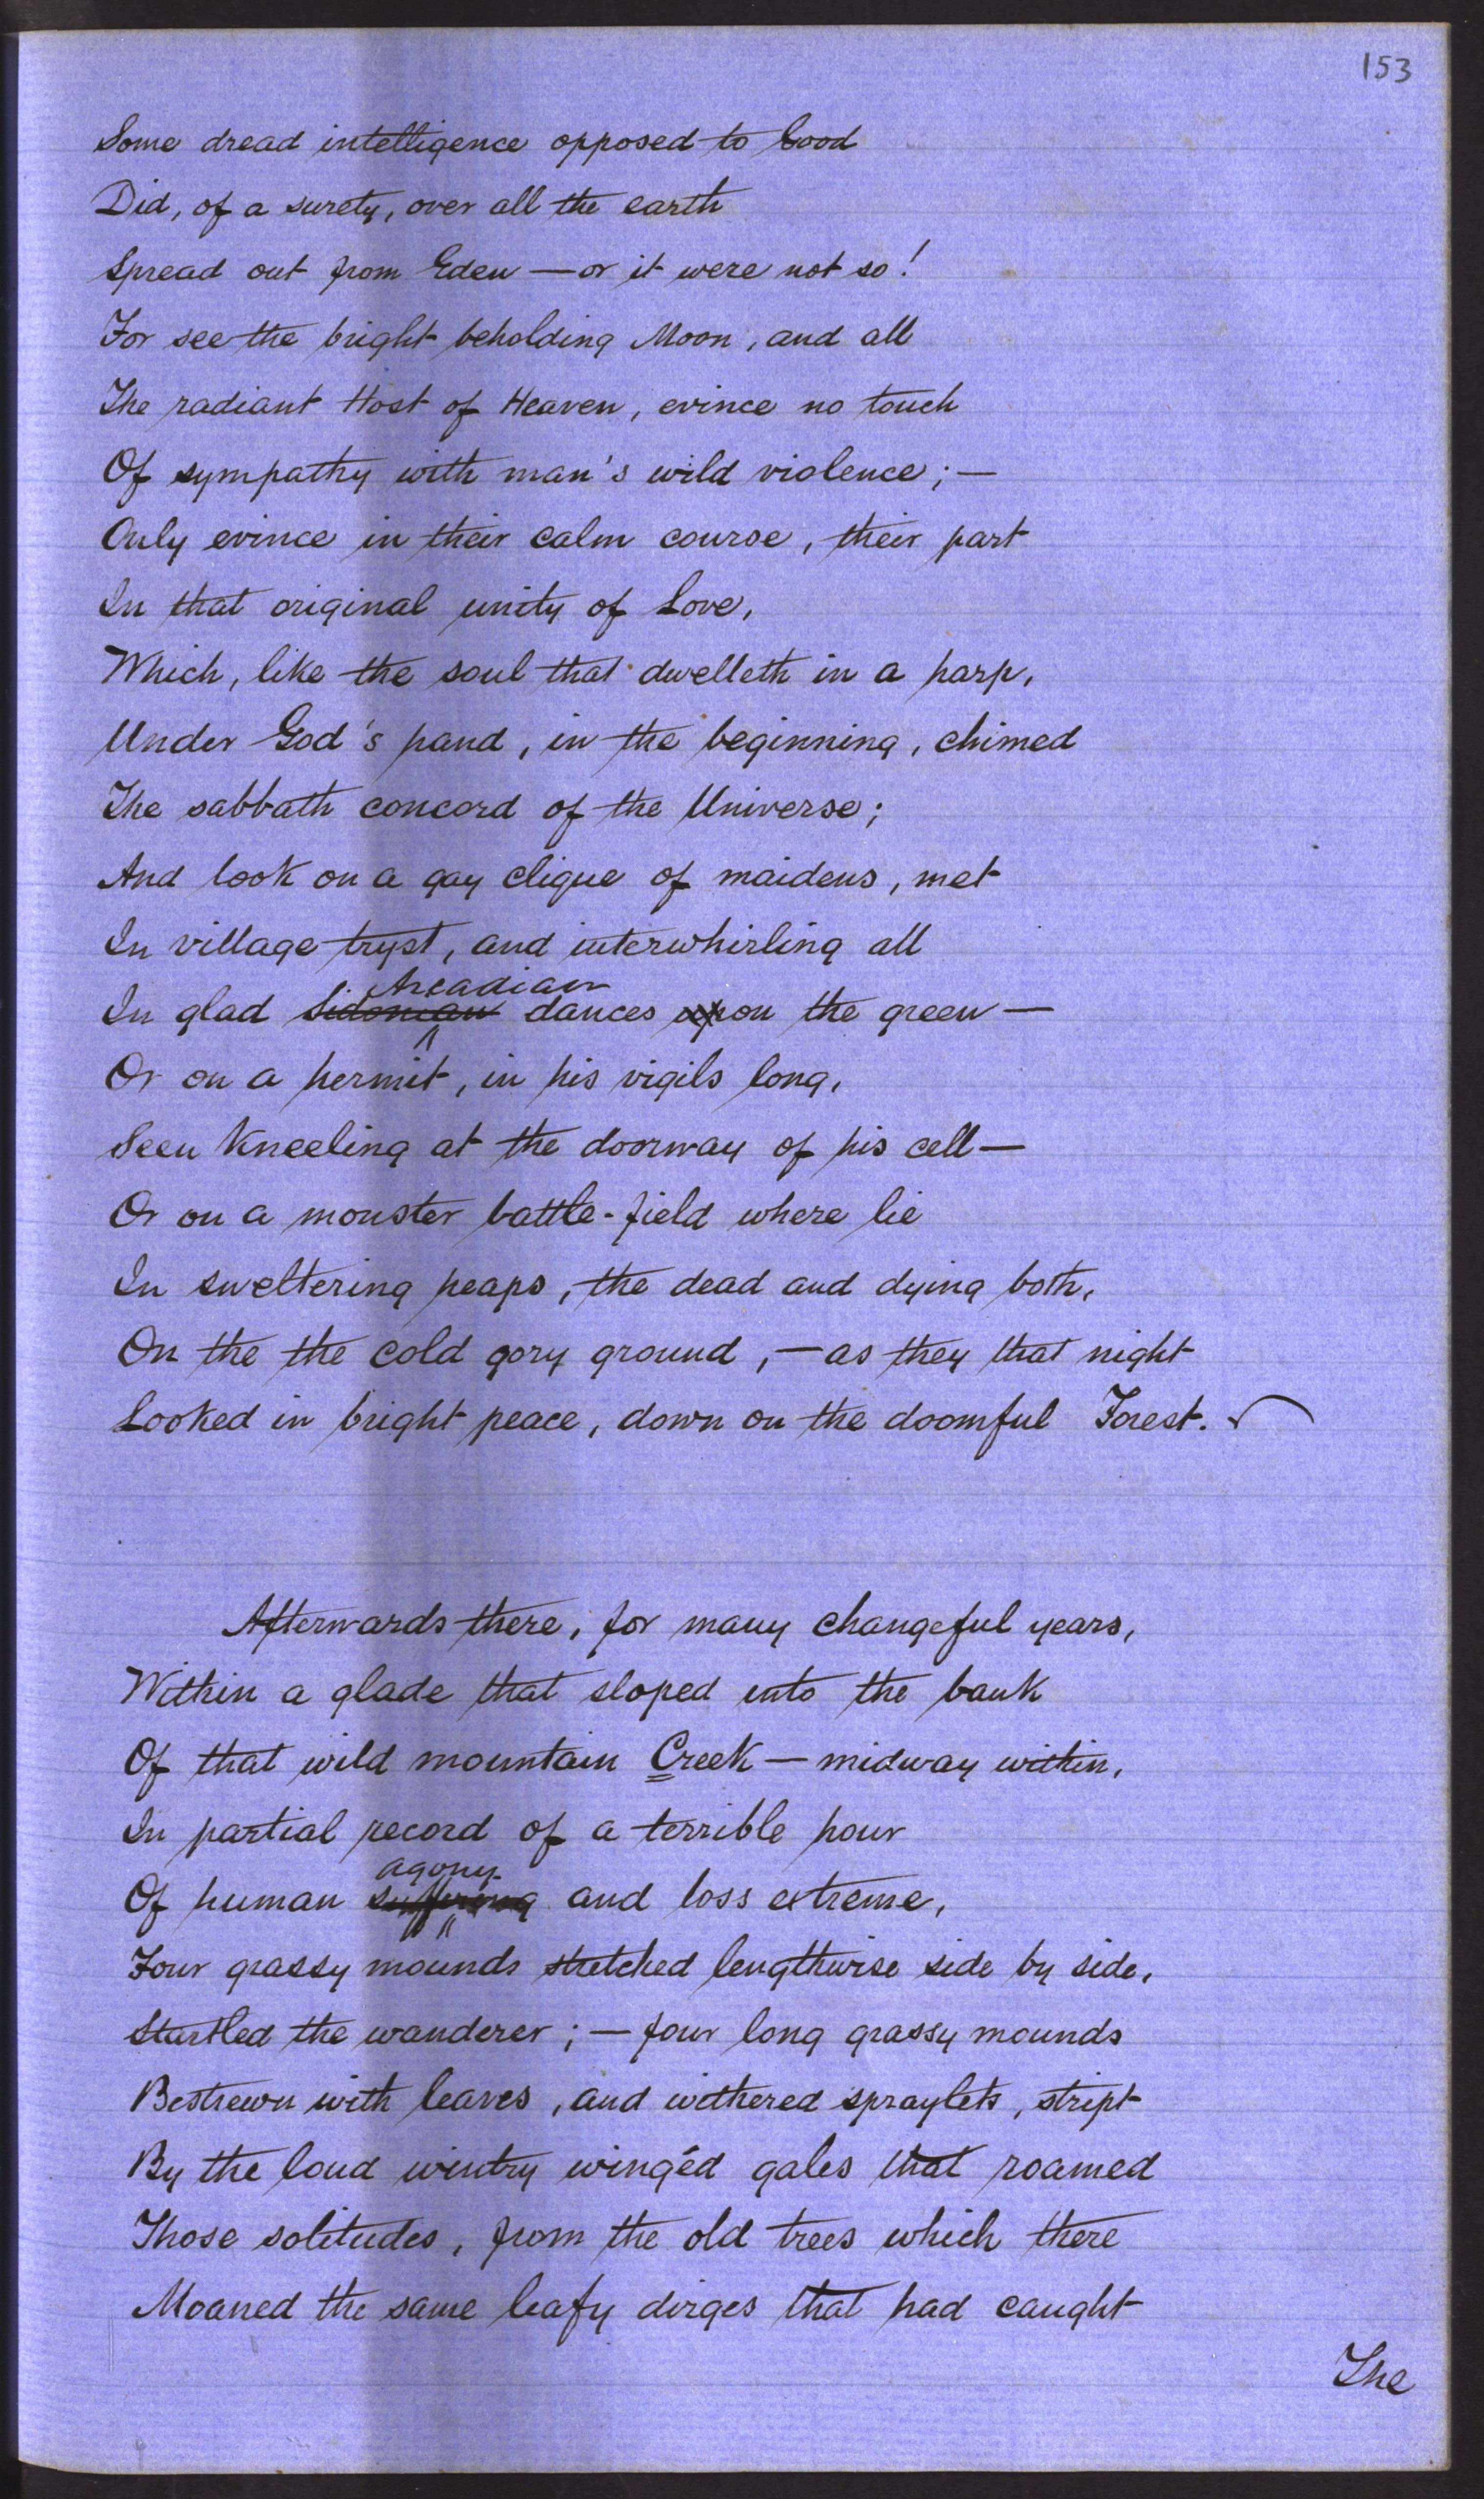 153
Some dread intelligence opposed to Good
Did, of a surety, over all the earth
Spread out from Eden — or it were not so!
For see the bright beholding Moon, and all
The radiant Host of Heaven, evince no touch
Of sympathy with man's wild violence; —
Only evince in their calm course, their part
In that original unity of Love,
Which, like the soul that dwelleth in a harp,
Under God's hand, in the beginning, chimed
The sabbath concord of the Universe;
And look on a gay clique of maidens, met
In village tryst, and interwhirling all
Arcadian
In glad Sidonian dances upon the green —
Or on a hermit, in his vigils long,
Seen kneeling at the doorway of his cell —
Or on a monster battle-field where lie
In sweltering heaps, the dead and dying both,
On the the cold gory ground, — as they that night
Looked in bright peace, down on the doomful Forest.
Afterwards there, for many changeful years,
Within a glade that sloped into the bank
Of that wild mountain Creek — midway within,
In partial record of a terrible hour
agony
Of human suffering and loss extreme,
Four grassy mounds stretched lengthwise side by side,
Startled the wanderer; — four long grassy mounds
Bestrewn with leaves, and withered spraylets, stript
By the loud wintry wingéd gales that roamed
Those solitudes, from the old trees which there
Moaned the same leafy dirges that had caught
The